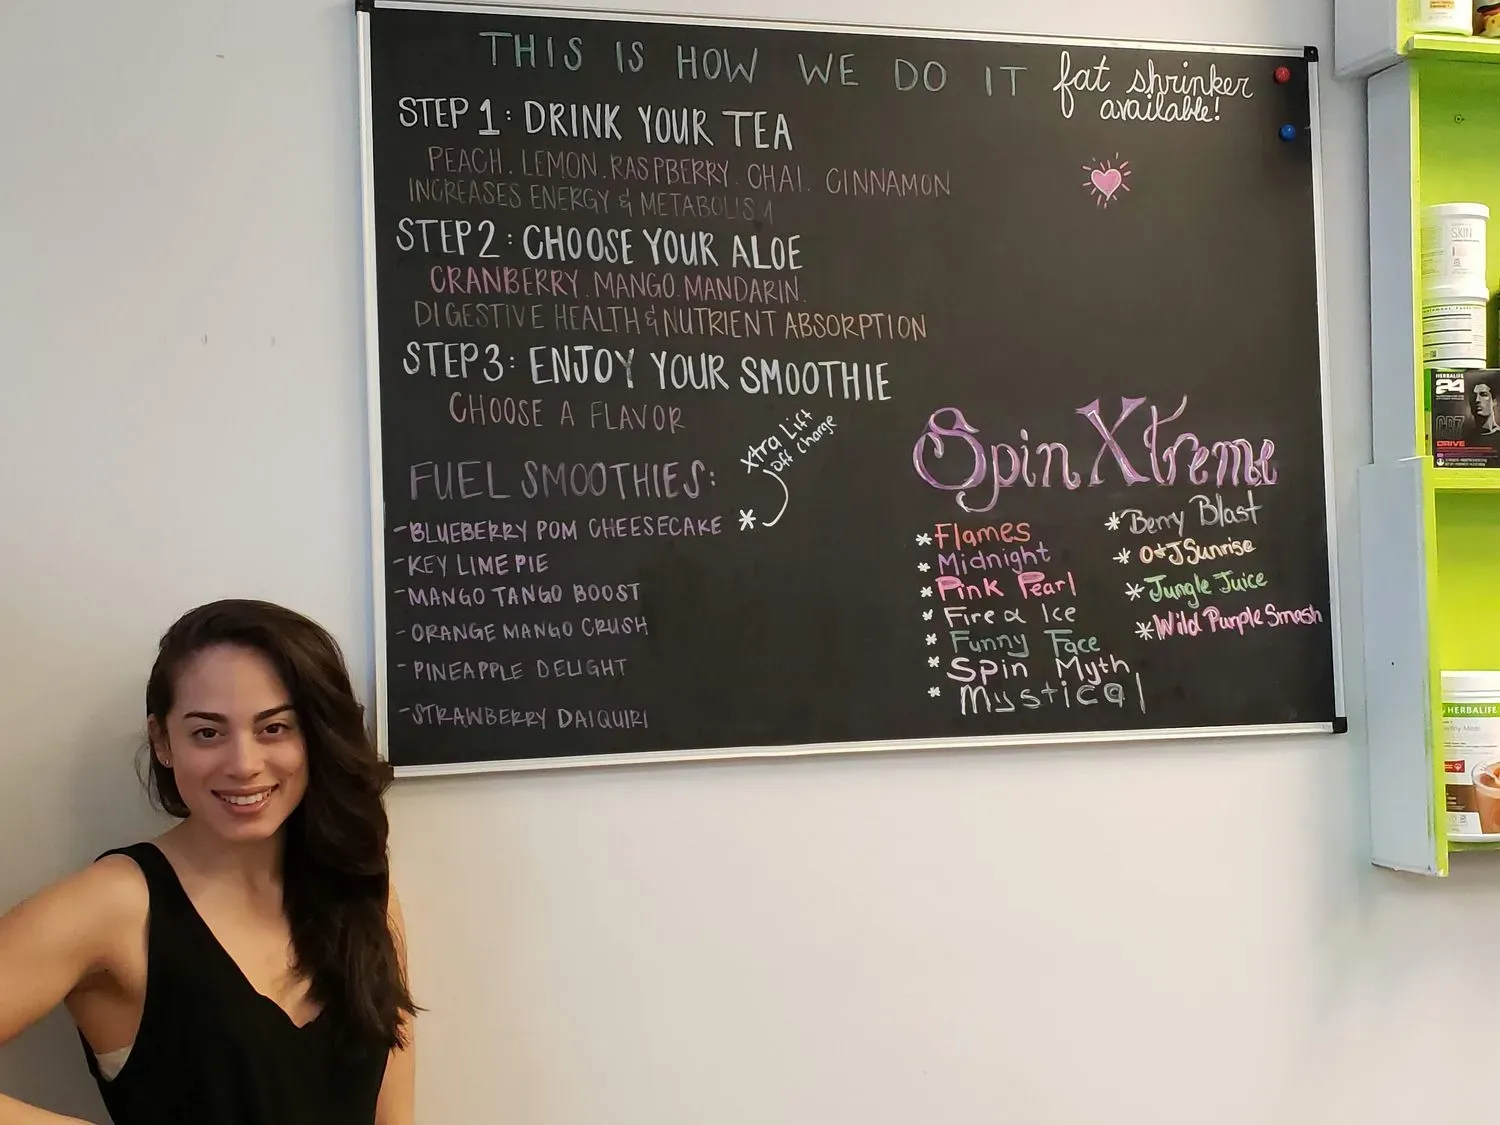 THIS IS HOW WE DO IT
fat shrinker
available!
STEP 1: DRINK YOUR TEA
PEACH. LEMON. RASPBERRY. CHAI. CINNAMON
INCREASES ENERGY & METABOLISM
STEP 2: CHOOSE YOUR ALOE
CRANBERRY. MANGO. MANDARIN.
DIGESTIVE HEALTH & NUTRIENT ABSORPTION
STEP 3: ENJOY YOUR SMOOTHIE
CHOOSE A FLAVOR
Xtra Lift
off charge
FUEL SMOOTHIES:
-BLUEBERRY POM CHEESECAKE *
-KEY LIME PIE
-MANGO TANGO BOOST
-ORANGE MANGO CRUSH
-PINEAPPLE DELIGHT
-STRAWBERRY DAIQUIRI
Spin Xtreme
*Flames
*Midnight
*Pink Pearl
*Fire & Ice
*Funny Face
*Spin Myth
*Mystical
*Berry Blast
*O+J Sunrise
*Jungle Juice
*Wild Purple Smash
SKIN
HERBALIFE
24
CR7
DRIVE
HERBALIFE